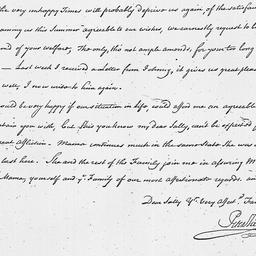 very unhappy Times will probably deprive us again of the satisfac
coming us this Summer agreable to our wishes, we earnestly request to h
and of your welfare. The only, tho not ample amends, for your too long
— Last week I received a Letter from Johnny, it gives us great pleas
well; I now write to him again.
ould be very happy if our situation in life, would afford me an agreeable
tain you with, but this you know my dear Sally, can't be expected
reat Affliction. Mama continues much in the same State She was
last here. She and the rest of the Family join me in assuring M
Mama, yourself and yr. Family of our most affectionate regards and
Dear Sally Yr. Very Affect.